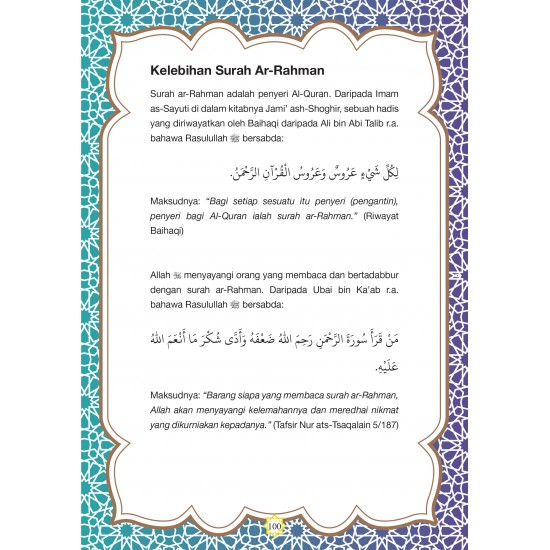 Kelebihan Surah Ar-Rahman
Surah ar-Rahman adalah penyeri Al-Quran. Daripada Imam
as-Sayuti di dalam kitabnya Jami’ ash-Shoghir, sebuah hadis
yang diriwayatkan oleh Baihaqi daripada Ali bin Abi Talib r.a.
bahawa Rasulullah ﷺ bersabda:
لِكُلِّ شَيْءٍ عَرُوسٌ وَعَرُوسُ الْقُرْآنِ الرَّحْمَنُ.
Maksudnya: “Bagi setiap sesuatu itu penyeri (pengantin),
penyeri bagi Al-Quran ialah surah ar-Rahman.” (Riwayat
Baihaqi)
Allah ﷻ menyayangi orang yang membaca dan bertadabbur
dengan surah ar-Rahman. Daripada Ubai bin Ka’ab r.a.
bahawa Rasulullah ﷺ bersabda:
مَنْ قَرَأَ سُورَةَ الرَّحْمَنِ رَحِمَ اللهُ ضَعْفَهُ وَأَدَّى شُكْرَ مَا أَنْعَمَ اللهُ
عَلَيْهِ.
Maksudnya: “Barang siapa yang membaca surah ar-Rahman,
Allah akan menyayangi kelemahannya dan meredhai nikmat
yang dikurniakan kepadanya.” (Tafsir Nur ats-Tsaqalain 5/187)
100